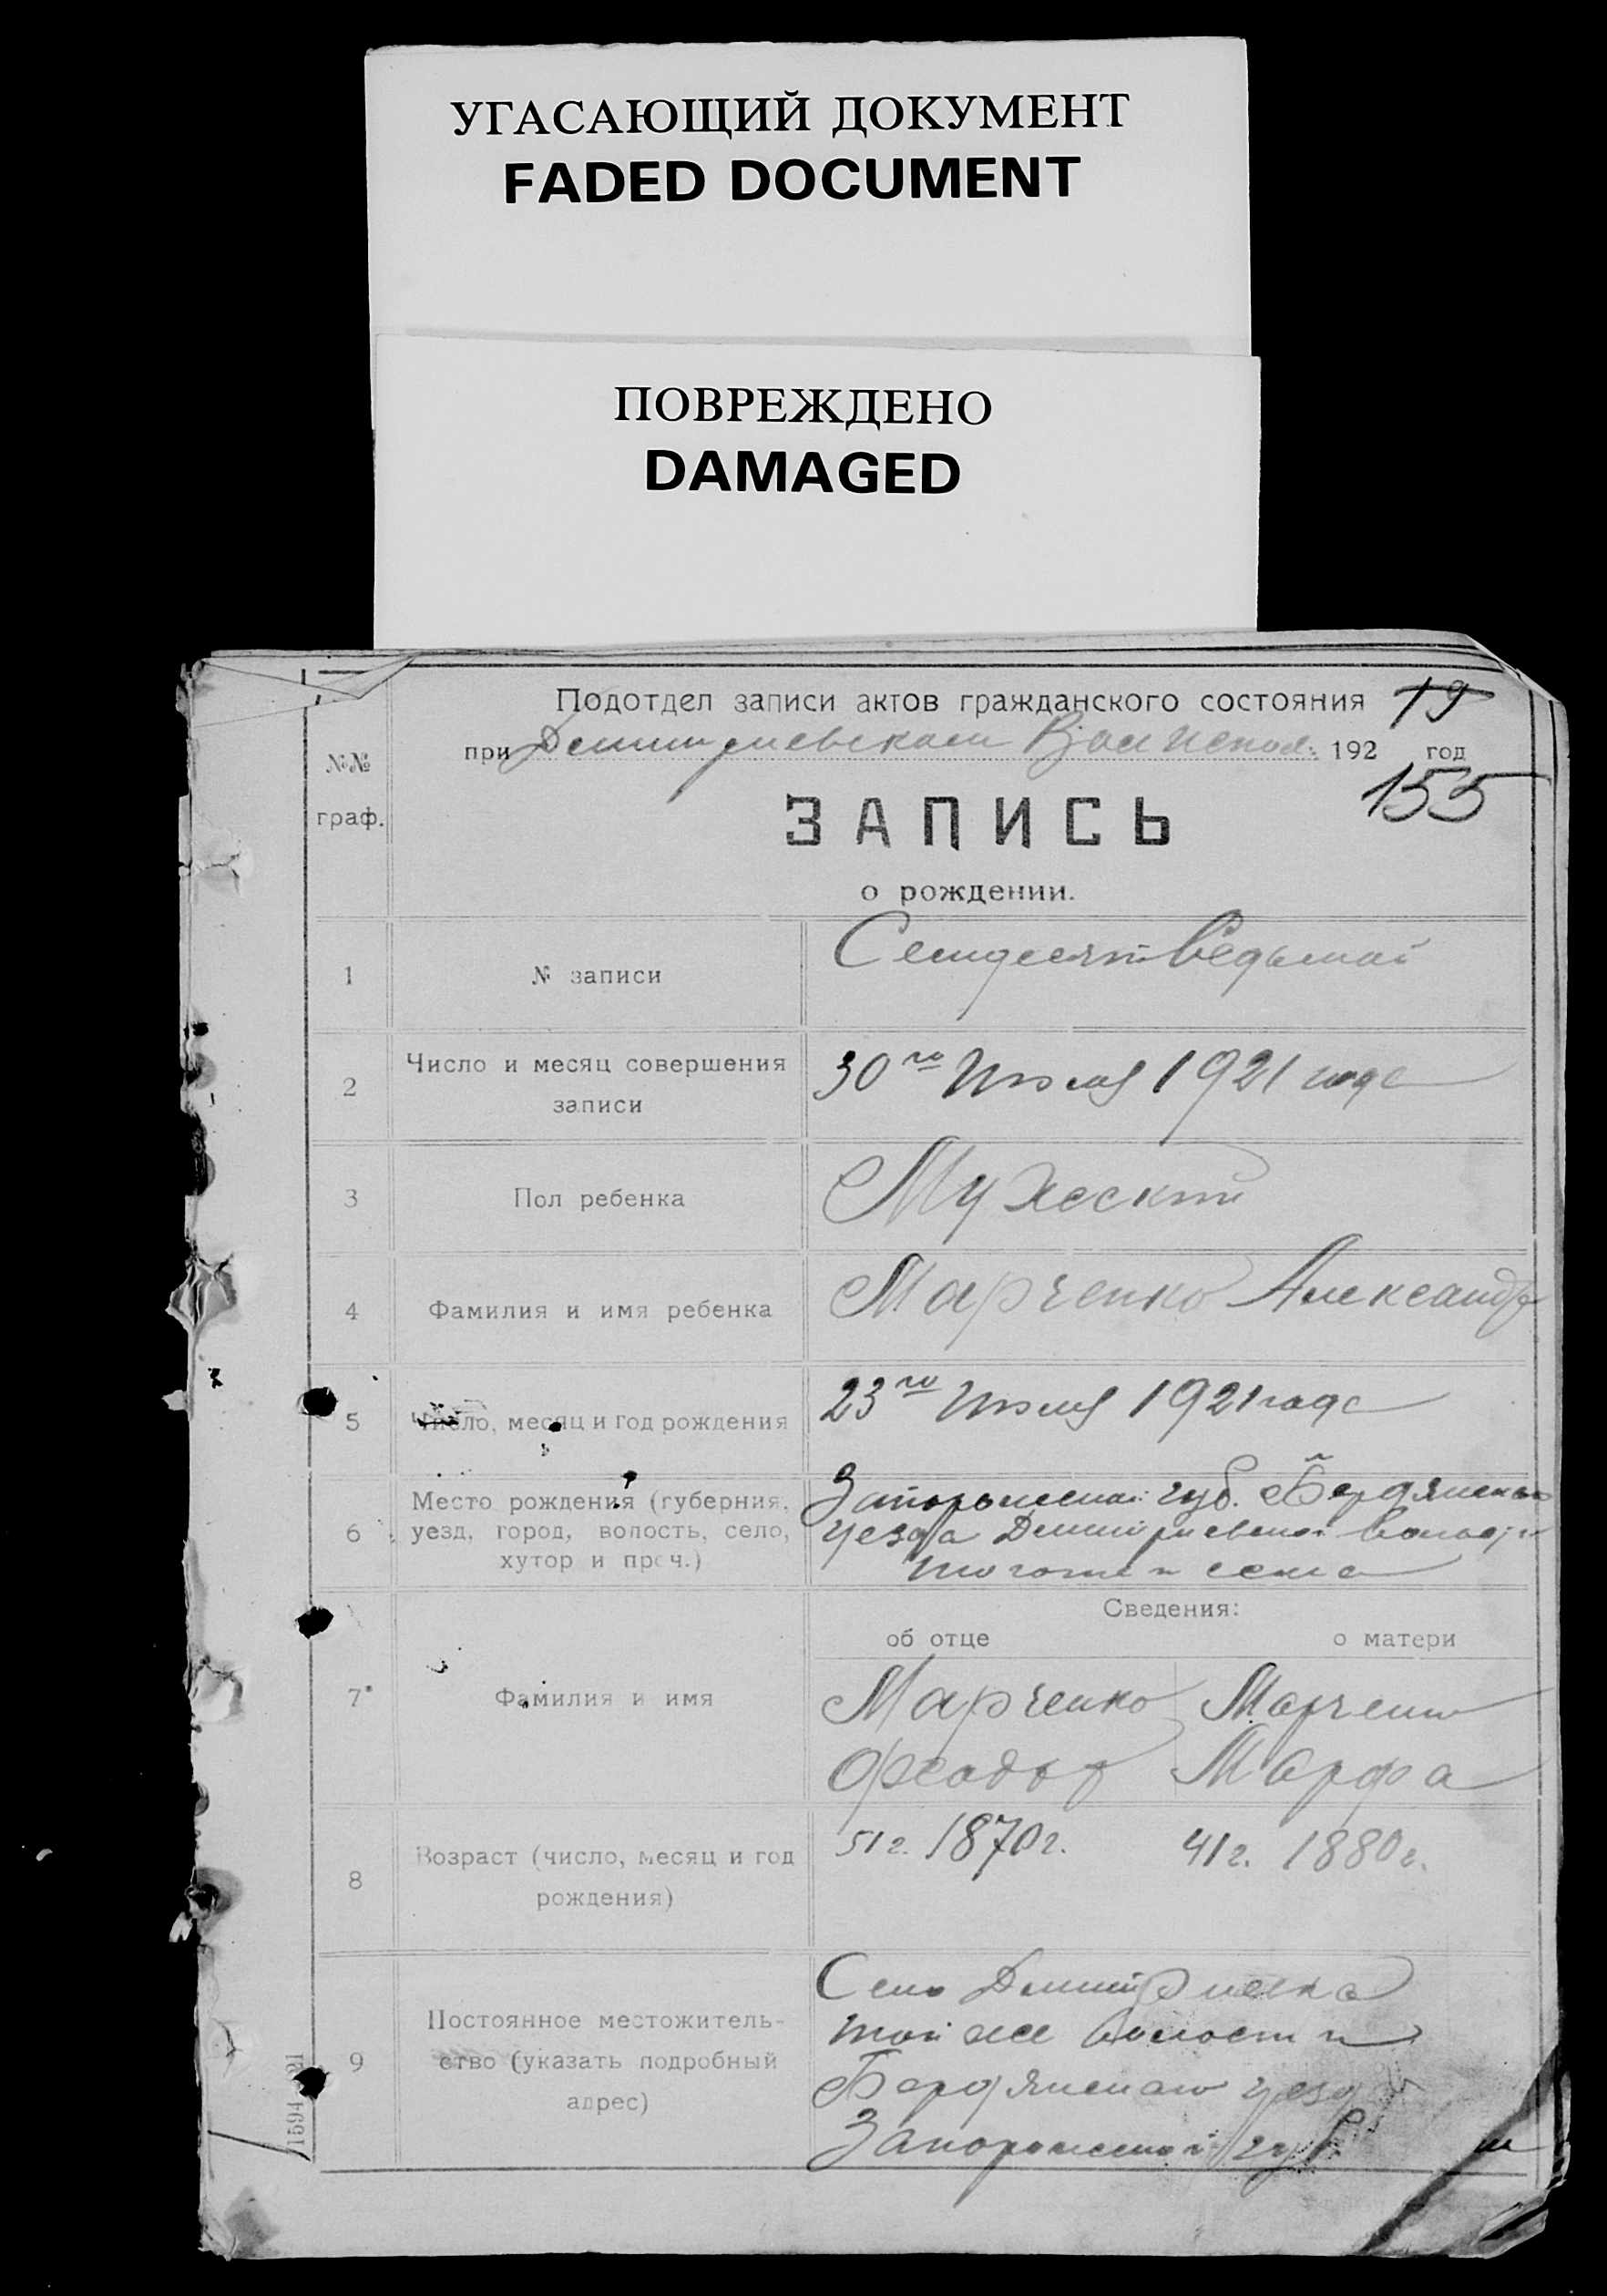 УГАСАЮЩИЙ ДОКУМЕНТ
FADED DOCUMENT
ПОВРЕЖДЕНО
DAMAGED
Подотдел записи актов гражданского состояния 19
при Дмитриевском Волиспол. 192 год
№№
граф.
155
ЗАПИСЬ
о рождении.
1 № записи Семидесят Седьмой
2 Число и месяц совершения
записи
30го Июля 1921 года
3 Пол ребенка Мужеский
4 Фамилия и имя ребенка Марченко Александр
5 Число, месяц и год рождения 23го Июля 1921 года
6 Место рождения (губерния,
уезд, город, волость, село,
хутор и проч.)
Запорожской губ. Бердянского
уезда Дмитриевской волости
того же села
Сведения:
об отце о матери
7 Фамилия и имя
Марченко Марченко
Феодор Марфа
8 Возраст (число, месяц и год
рождения)
51 г. 1870 г. 41 г. 1880 г.
9 Постоянное местожитель-
ство (указать подробный
адрес)
Село Дмитриевка
той же волости
Бердянского уезда
Запорожской губ.